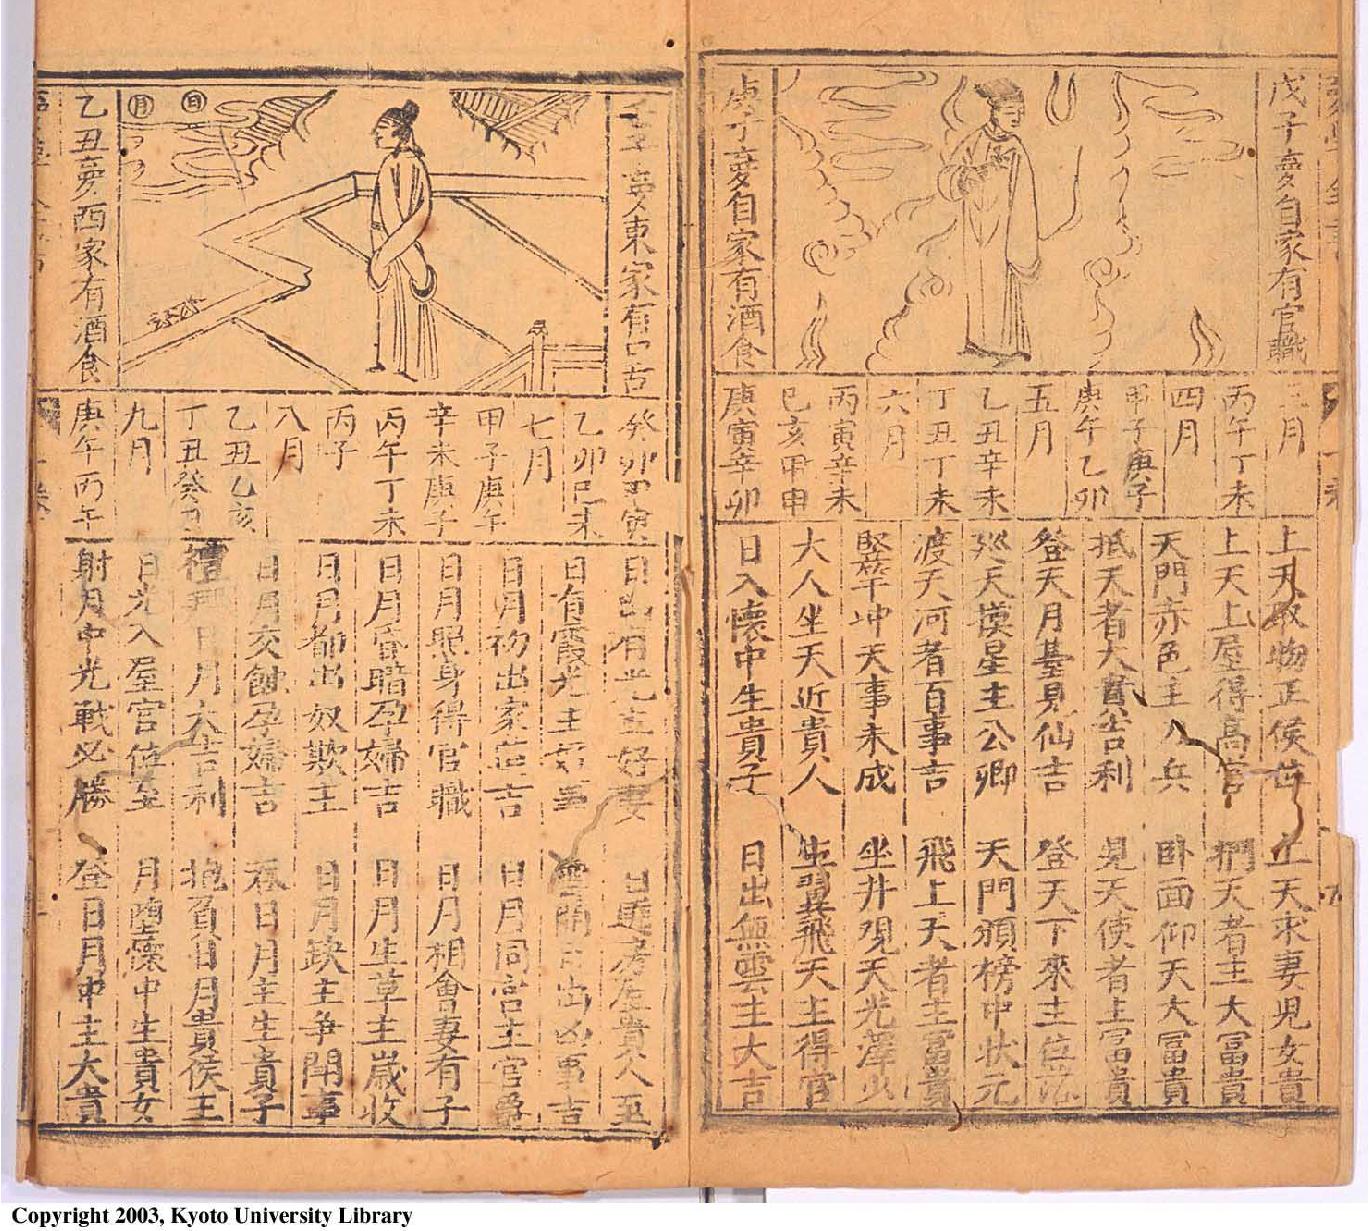 戊子夢自家有官職
庚子夢自家有酒食
三月
丙午丁未
四月
甲子庚子
庚午乙卯
五月
乙丑辛未
丁丑丁未
六月
丙寅辛未
巳亥甲申
庚寅辛卯
上天取物正侯位
上天求妻児女貴
上天上屋得高官
捫天者主大富貴
天門赤色主人兵
卧面仰天大富貴
抵天者大貴吉利
見天使者主富貴
登天月基見仙吉
登天下來主位
巡天摸星主公卿
天門頒榜中状元
渡天河者百事吉
飛上天者主富貴
竪竿冲天事未成
坐井观天光澤少
大人坐天近貴人
生翼飛天主得官
日入懷中生貴子
日出無雲主大吉
夢東家有口舌
乙丑夢西家有酒食
癸卯甲寅
乙卯巳未
七月
甲子庚午
辛未庚子
丙午丁未
丙子
八月
乙丑乙亥
丁丑癸丑
九月
庚午丙午
日出有光主好妻
日進房屋貴人至
日有霞光主好事
雲開日出凶事吉
日月初出家庄吉
日月同宫主官爵
日月照身得官職
日月相會妻有子
日月昏暗孕婦吉
日月生草主歲收
日月都出奴欺主
日月缺主争閗事
日月交蝕孕婦吉
吞日月主生貴子
禮拜日月大吉利
抱負日月貴侯王
日光入屋官位至
月墮懷中生貴女
射月中光戰必勝
登日月中主大貴
日
月
Copyright 2003, Kyoto University Library